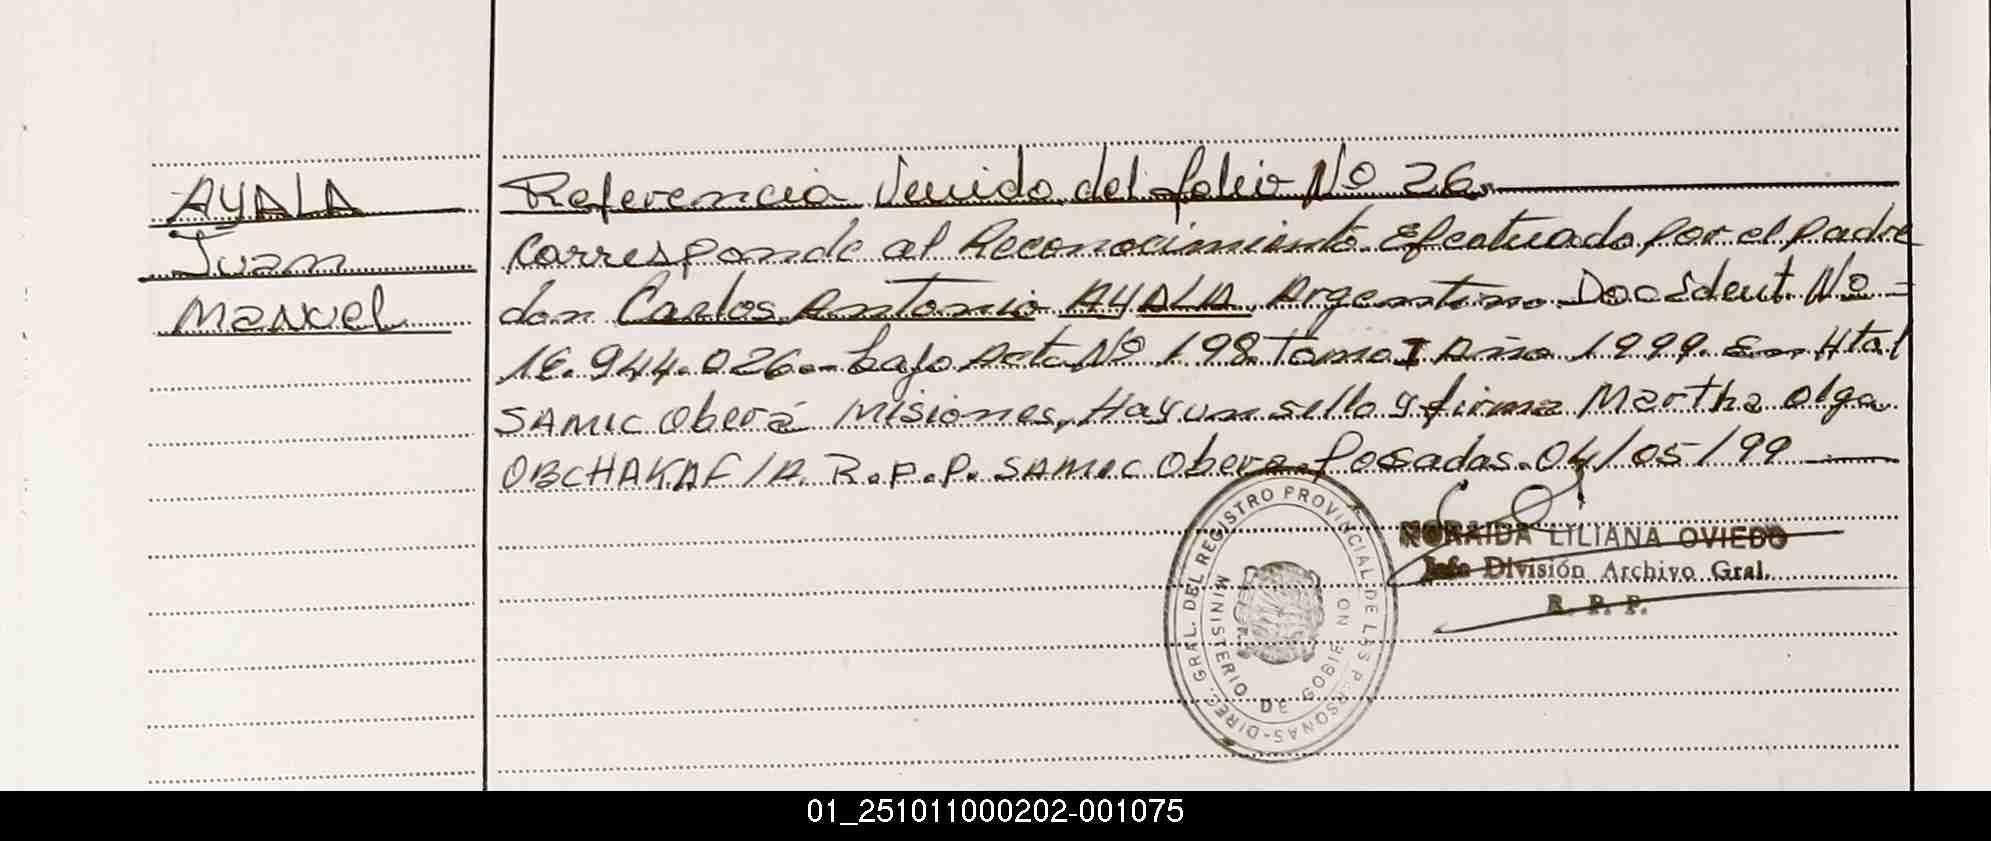 AYALA
Juan
Manuel
Referencia Venido del folio Nº 26.
Corresponde al Reconocimiento Efectuado por el padre
don Carlos Antonio AYALA Argentino Doc Ident. Nº
16.944.026.- bajo Acta Nº 198 Tomo I Año 1999. En Htal
SAMIC Oberá Misiones, Hay un sello y firma Martha Olga
OBCHAKAF/A. R.P.P. SAMIC Obera. Posadas. 04/05/99
NORAIDA LILIANA OVIEDO
Jefe División Archivo Gral.
R. P. P.
DIREC. GRAL. DEL REGISTRO PROVINCIAL DE LAS PERSONAS
MINISTERIO DE GOBIERNO
01_251011000202-001075